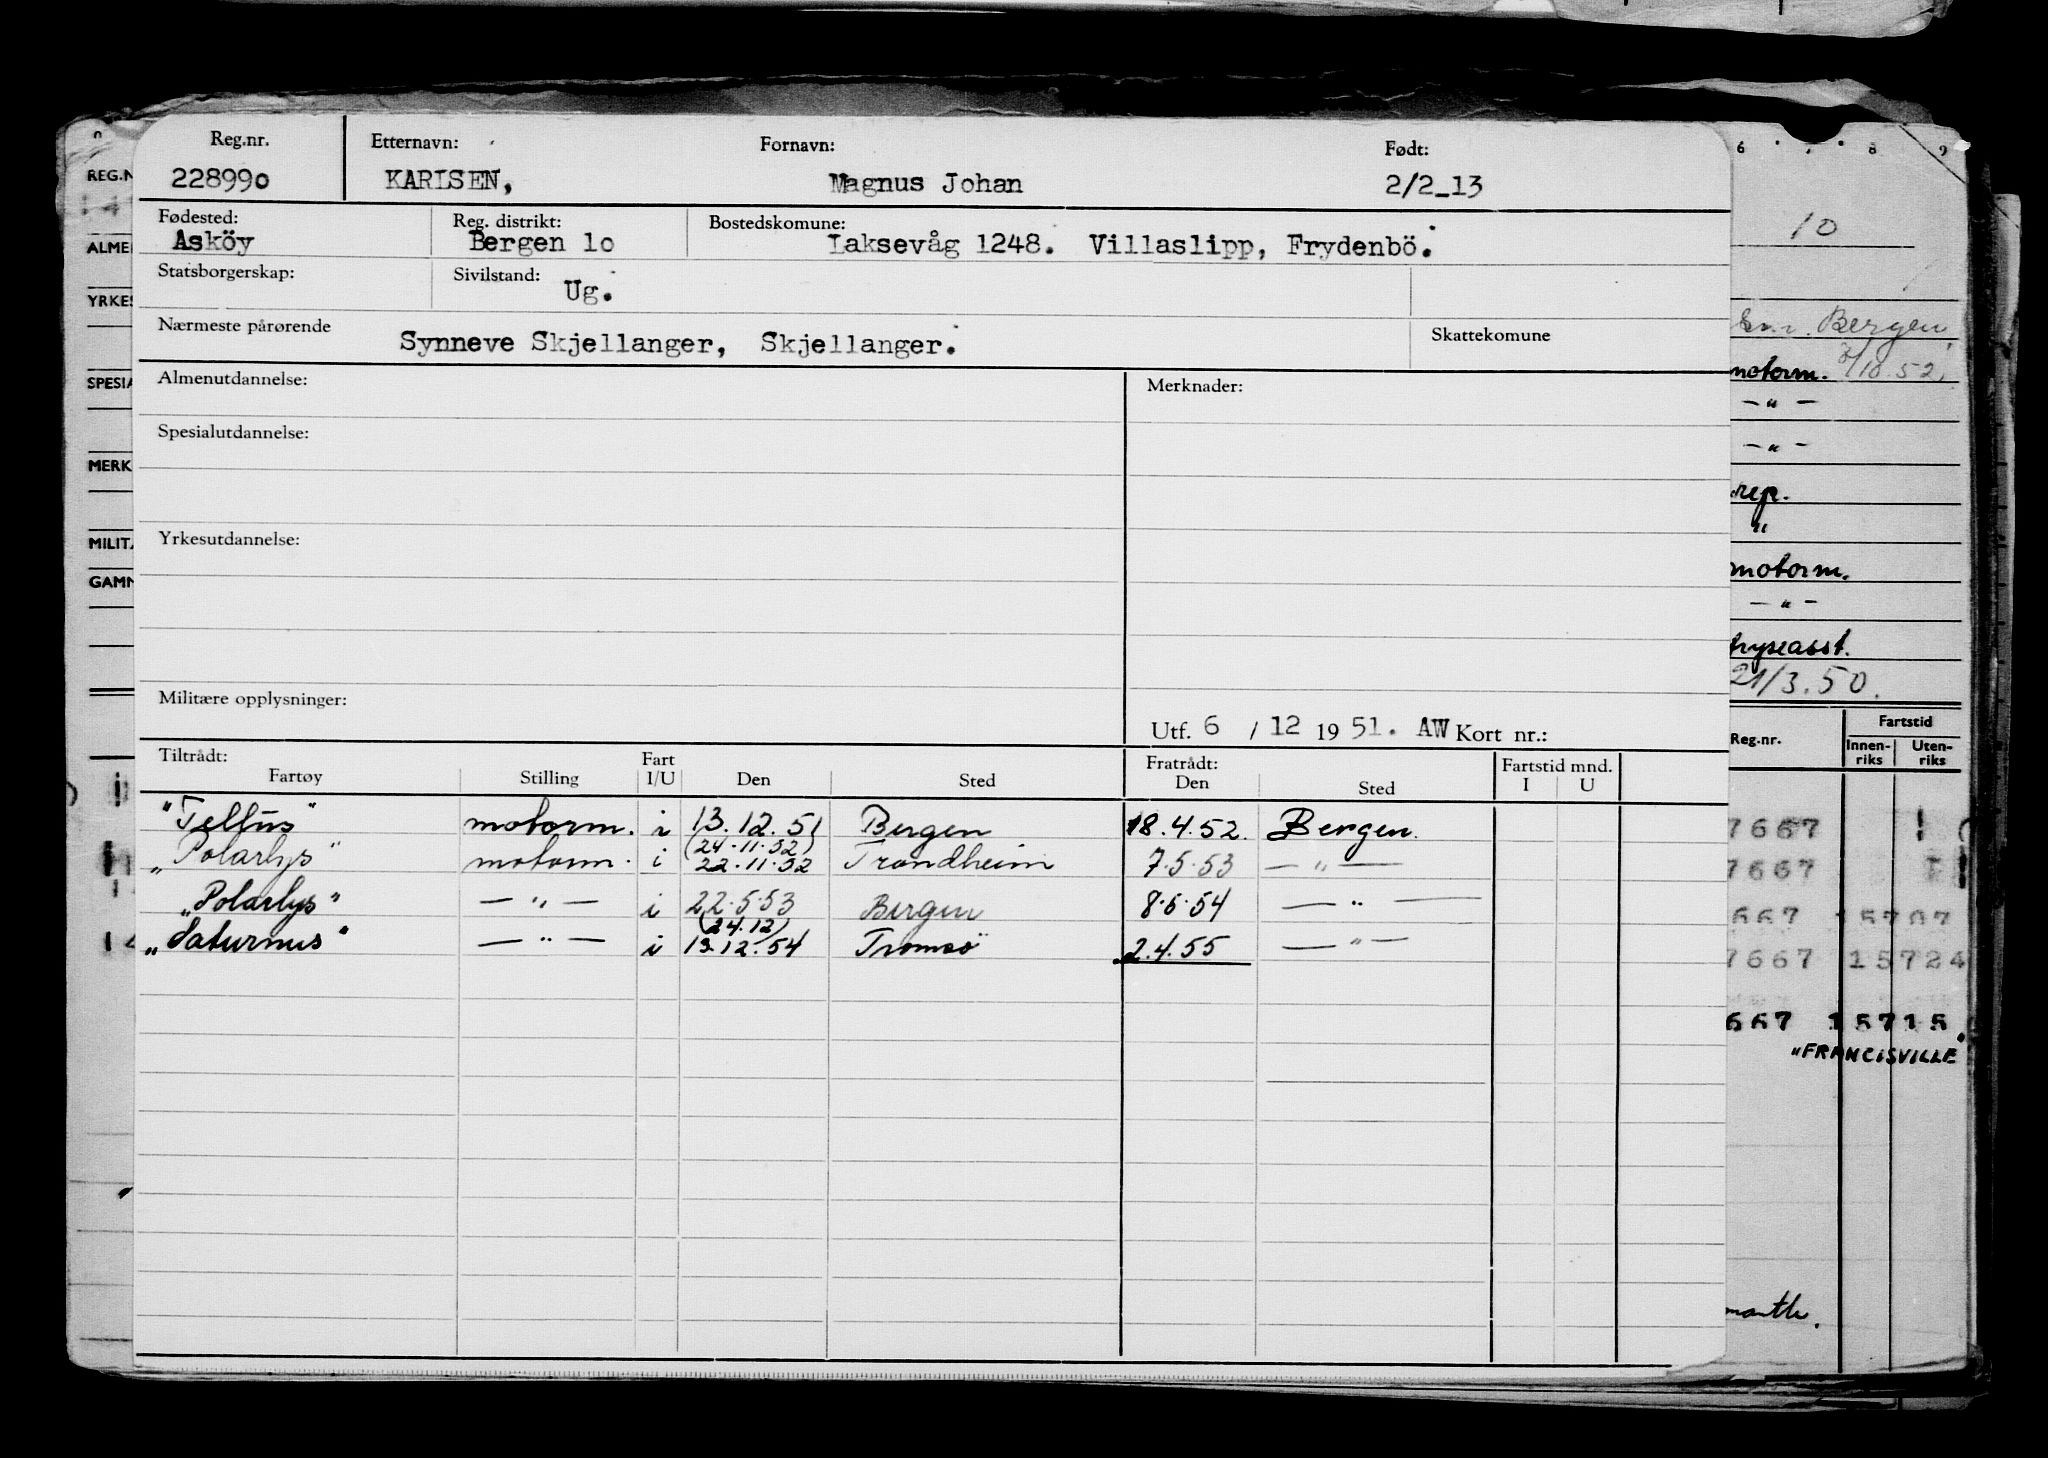 Reg.nr. Etternavn: Fornavn: Født:
228990 KARLSEN, Magnus Johan 2/2_13
Fødested: Reg. distrikt: Bostedskomune:
Asköy Bergen lo Laksevåg 1248. Villaslipp, Frydenbö.
Statsborgerskap: Sivilstand:
Ug.
Nærmeste pårørende Skattekomune
Synneve Skjellanger, Skjellanger.
Almenutdannelse: Merknader:
Spesialutdannelse:
Yrkesutdannelse:
Militære opplysninger:
Utf. 6 / 12 19 51. AW Kort nr.:
Tiltrådt: Fart Fratrådt: Fartstid mnd.
Fartøy Stilling I/U Den Sted Den Sted I U
"Tellus" motorm. i 13.12.51 Bergen 18.4.52. Bergen.
(24.11.52)
"Polarlys" motorm. i 22.11.52 Trondheim 7.5.53 — " —
"Polarlys" — " — i 22.5.53 Bergen 8.6.54 — " —
(24.12)
"Saturnus" — " — i 13.12.54 Tromsö 2.4.55 — " —
REG.N
ALMEN
YRKES
SPESIA
MERK
MILITÆ
GAMM
6 7 8 9
10
Bergen
motorm. 10.52
— " —
— " —
rep.
"
motorm.
— " —
21/3.50.
Fartstid
Reg.nr. Innen-riks Uten-riks
7667
7667
667 15707
7667 15724
667 15715
"FRANCISVILLE